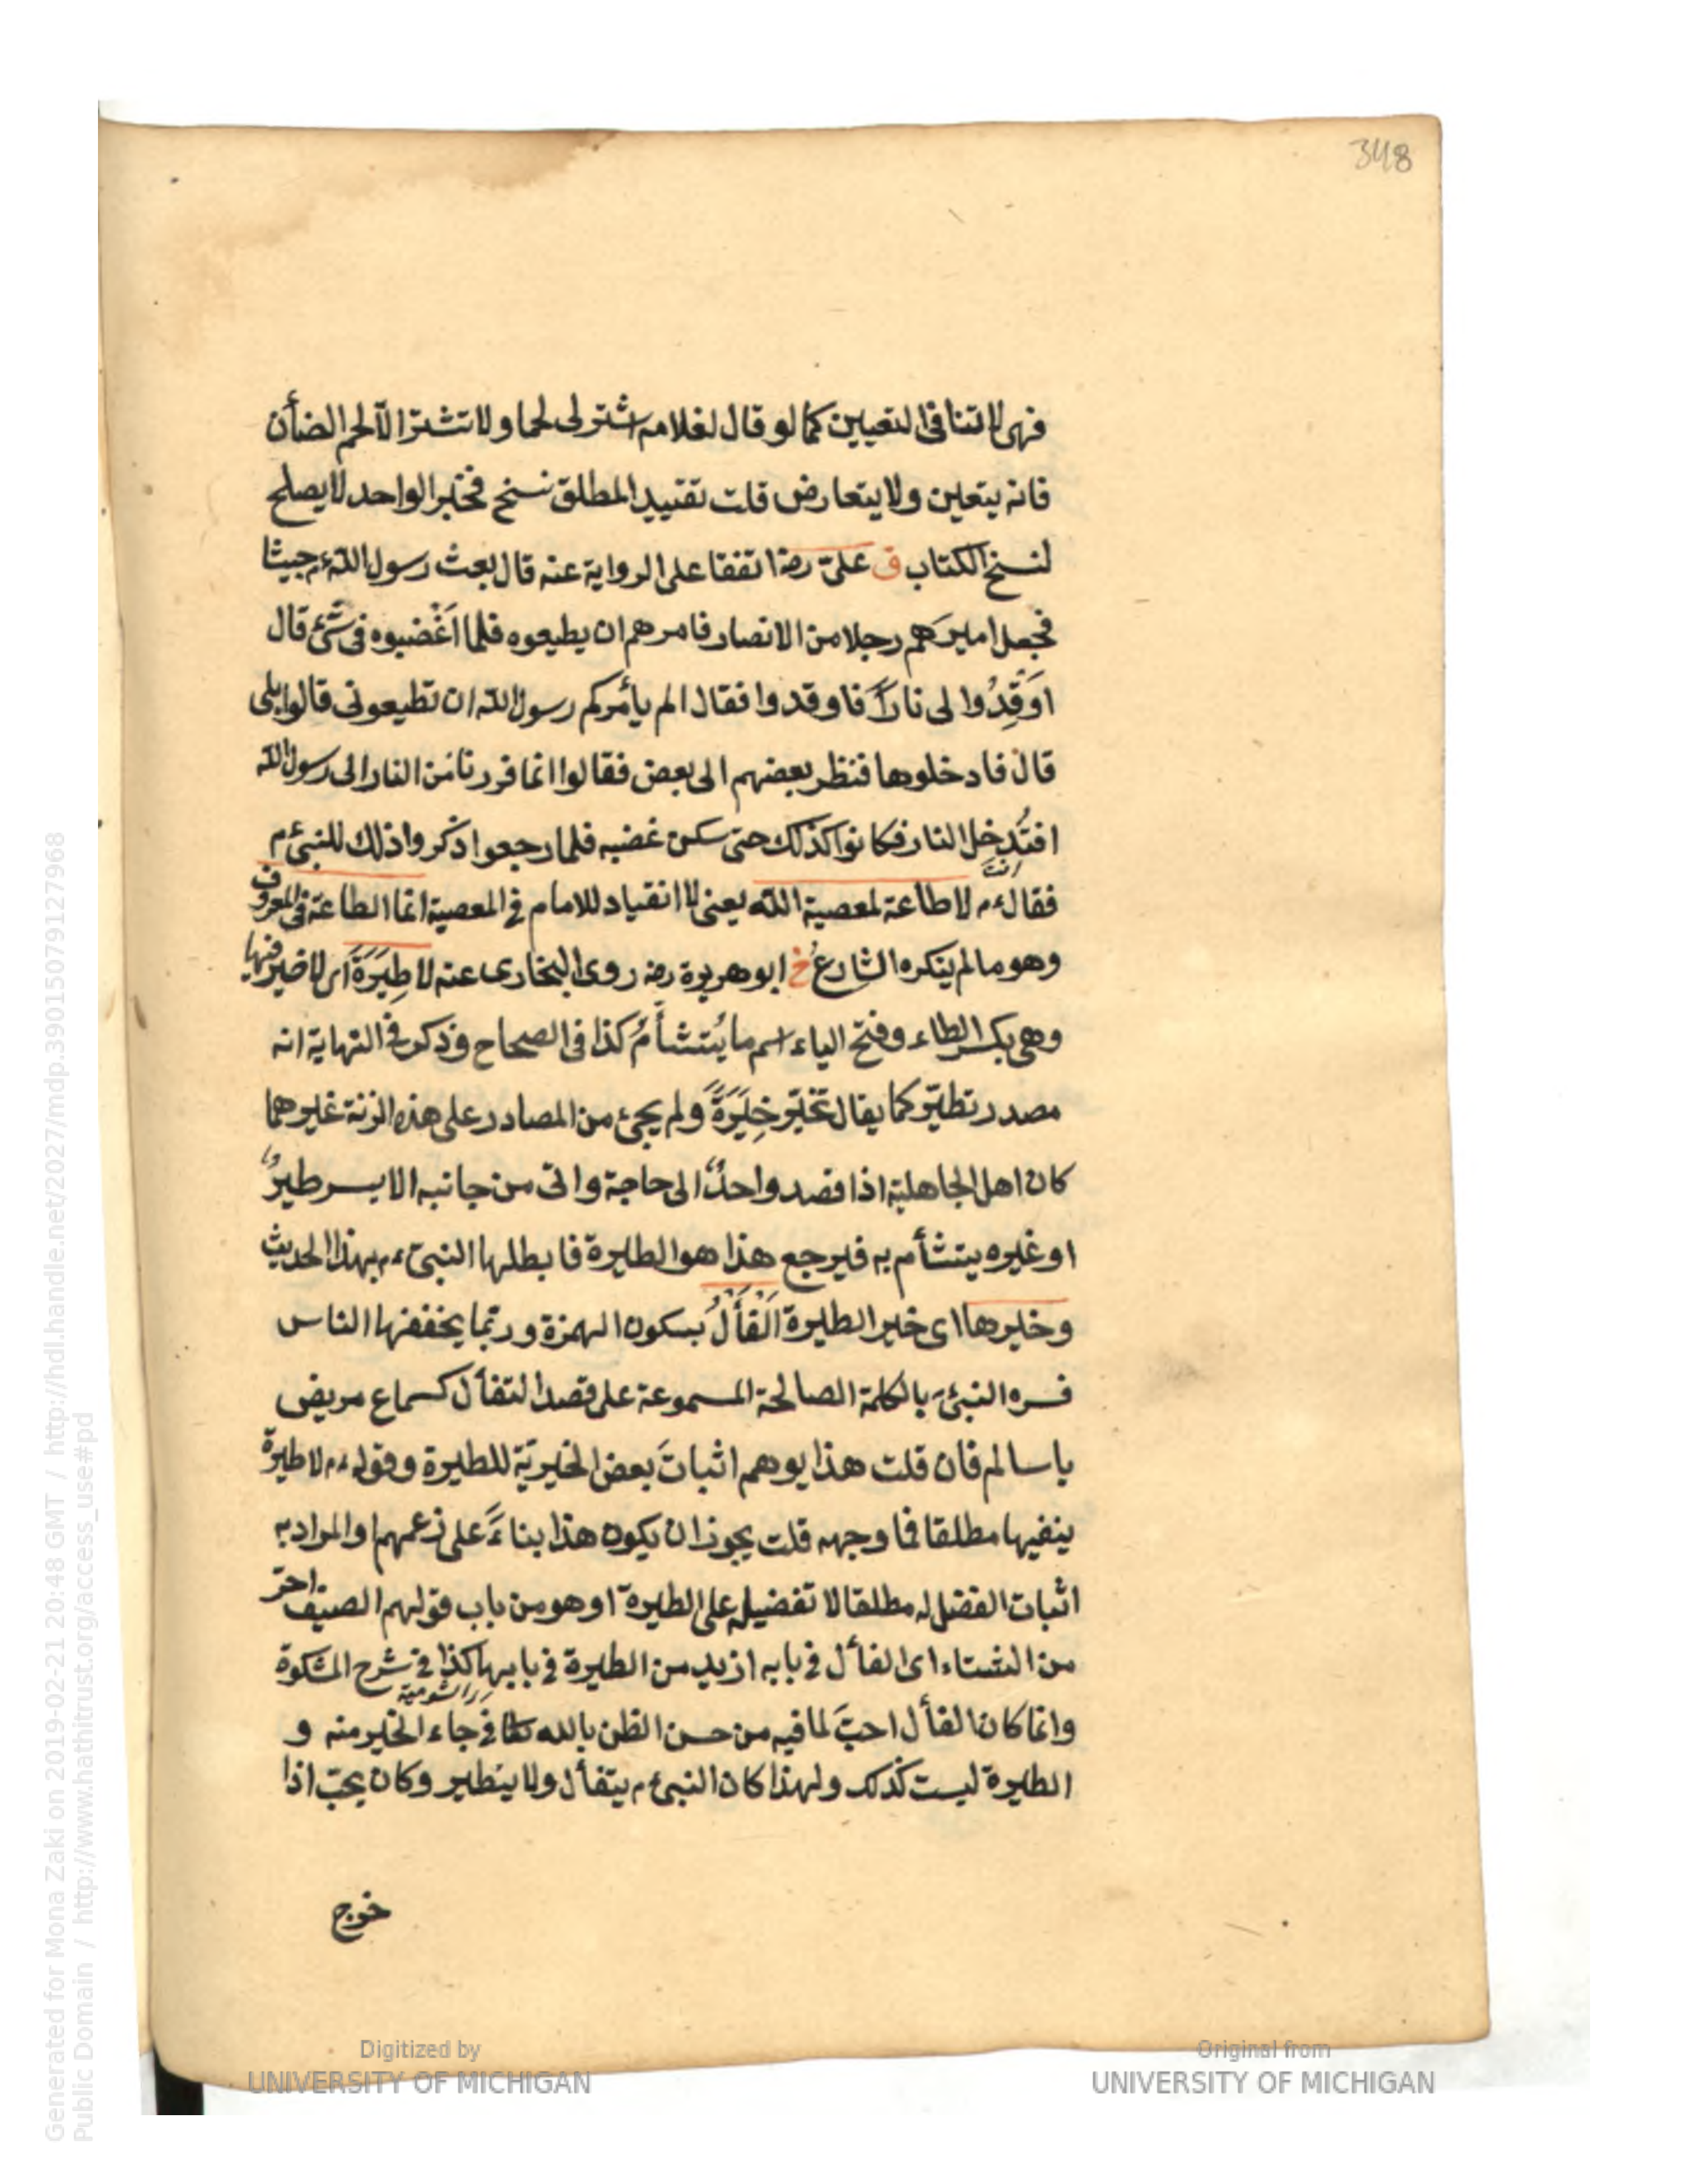 348
فهى لا تنافى التعيين كما لو قال لغلامه اشتر لى لحما ولا تشتر الا لحم الضأن
فانه يتعين ولا يتعارض قلت تقييد المطلق نسخ فخبر الواحد لا يصلح
لنسخ الكتاب ق علىّ رضه اتفقا على الرواية عنه قال بعث رسول الله عم جيشا
فجعل اميرَهم رجلا من الانصار فامرهم ان يطيعوه فلما اَغْضبوه فى شَئ قال
اَوْقِدُوا لى ناراً فاوقدوا فقال الم يأمركم رسول الله ان تطيعونى قالوا بلى
قال فادخلوها فنظر بعضهم الى بعض فقالوا انما فررنا من النار الى رسول الله
افنَدخل النار فكانوا كذلك حتى سكن غضبه فلما رجعوا ذكروا ذلك للنبى عم
فقال عم لا طاعة لمعصية الله يعنى لا انقياد للامام فى المعصية انما الطاعة فى المعروف
وهو ما لم ينكره الشارع خ ابو هريرة رضه روى البخارى عنه لا طِيَرَةَ اى لا خير فيها
وهى بكسر الطاء وفتح الياء اسم ما يُتشأمُ كذا فى الصحاح وذكر فى النهاية انه
مصدر تطيّر كما يقال تخيّر خِيَرَةً ولم يجئ من المصادر على هذه الزنة غيرهما
كان اهل الجاهلية اذا قصد واحدٌ الى حاجة واتى من جانبه الايسر طيرٌ
او غيره يتشأم به فيرجع هذا هو الطيرة فابطلها النبى عم بهذا الحديث
وخيرها اى خير الطيرة اَلْفَأْلُ بسكون الهمزة وربما يخففها الناس
فسره النبى بالكلمة الصالحة المسموعة على قصد التفأل كسماع مريض
يا سالم فان قلت هذا يوهم اثباتَ بعض الخيريّة للطيرة وقوله عم لا طيرة
ينفيها مطلقا فما وجهه قلت يجوز ان يكون هذا بناءً على زعمهم والمراد به
اثبات الفضل له مطلقا لا تفضيله على الطيرة او هو من باب قولهم الصيف احرّ
من الشتاء اى الفأل فى بابه ازيد من الطيرة فى بابها كذا فى شرح المشكوة
وانما كان الفأل احبّ لما فيه من حسن الظن بالله جاء الخير منه و
الطيرة ليست كذلك ولهذا كان النبى عم يتفأل ولا يتطير وكان يحبّ اذا
خرج
Generated for Mona Zaki on 2019-02-21 20:48 GMT / http://hdl.handle.net/2027/mdp.39015079127968
Public Domain / http://www.hathitrust.org/access_use#pd
Digitized by
UNIVERSITY OF MICHIGAN
Original from
UNIVERSITY OF MICHIGAN